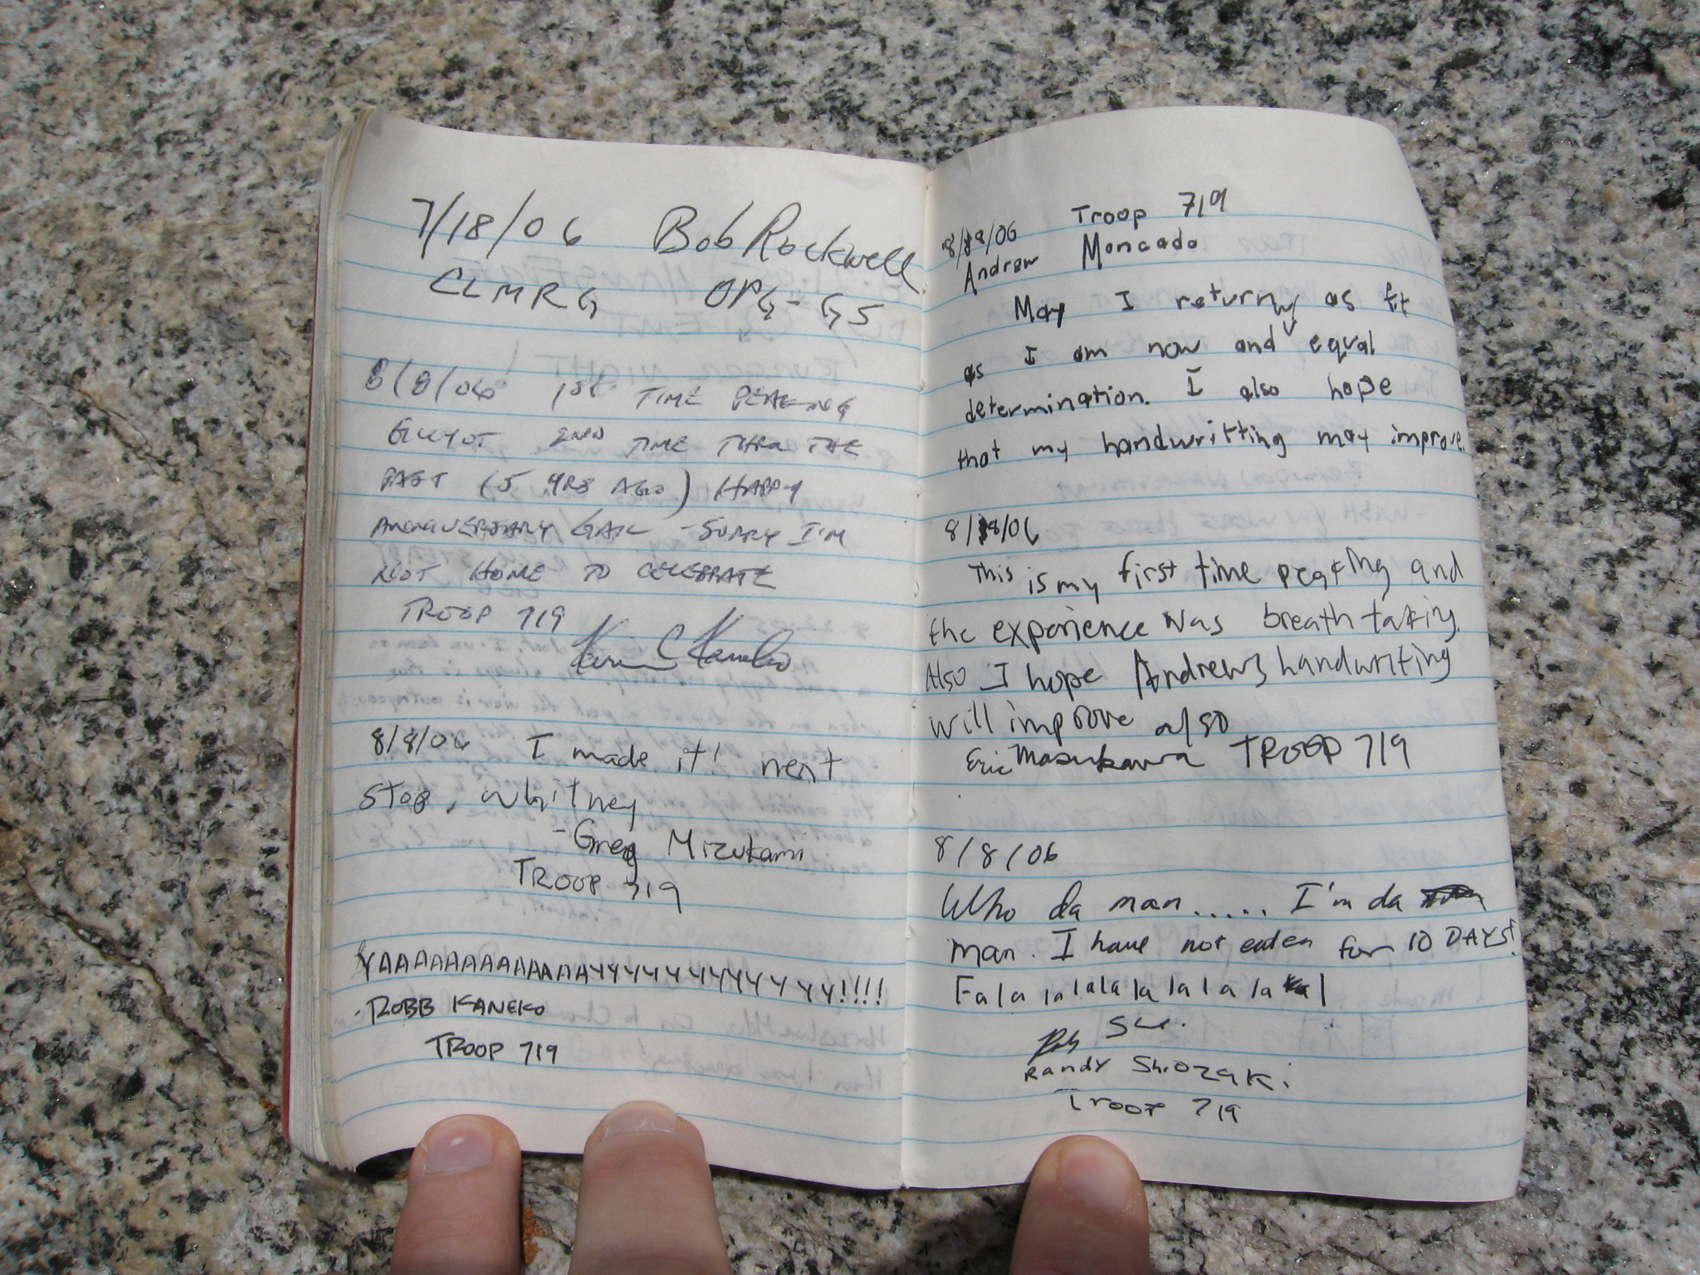 7/18/06 Bob Rockwell
CLMRG OPG-GS
8/8/06 1st TIME PEAKING
GUYOT 2ND TIME THRU THE
PAST (5 YRS AGO) HAPPY
ANNIVERSARY GAIL - SORRY I'M
NOT HOME TO CELEBRATE
TROOP 719
Kaneko
8/8/06 I made it! next
stop, whitney
- Greg Mizukami
TROOP 719
YAAAAAAAAAAAAAAYYYYYYYYYYYYY!!!!
- ROBB KANEKO
TROOP 719
Troop 719
8/8/06
Andrew Moncado
May I return as fit
as I am now and equal
determination. I also hope
that my handwritting may improve.
8/8/06
This is my first time peaking and
the experience was breath taking.
Also I hope Andrews handwriting
will improve also
Eric Masukawa TROOP 719
8/8/06
Who da man..... I'm da
man. I have not eaten for 10 DAYS!
Falala lalala la la la la la la
Randy Shiozaki
Troop 719